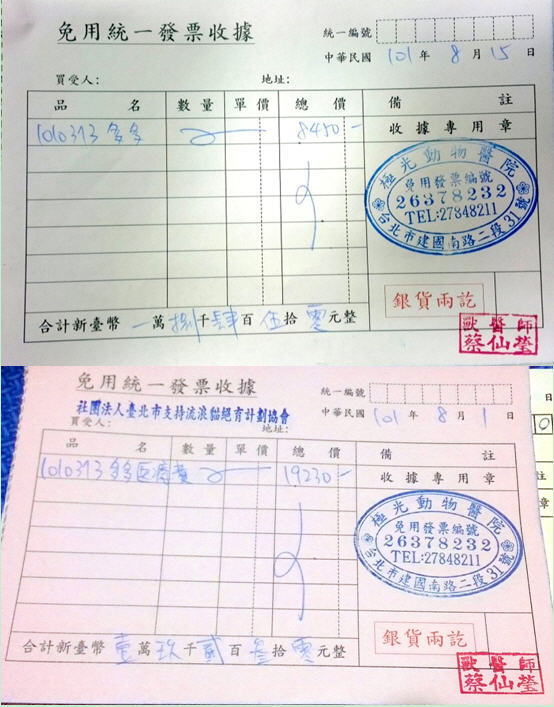 免用統一發票收據
統一編號
中華民國 101 年 8 月 15 日
買受人： 地址：
品 名 數量 單價 總 價 備 註
1010313 多多 8450-
收據專用章
極光動物醫院
免用發票編號
26378232
TEL:27848211
台北市建國南路二段31號
銀貨兩訖
合計新臺幣 萬 捌 千 肆 百 伍 拾 零 元整
獸醫師
蔡仙瑩
免用統一發票收據
統一編號
社團法人臺北市支持流浪貓絕育計劃協會
中華民國 101 年 8 月 1 日
買受人： 地址：
品 名 數量 單價 總 價 備 註
1010313 多多醫療費 19230-
收據專用章
極光動物醫院
免用發票編號
26378232
TEL:27848211
台北市建國南路二段31號
銀貨兩訖
合計新臺幣 壹 萬 玖 千 貳 百 叁 拾 零 元整
獸醫師
蔡仙瑩